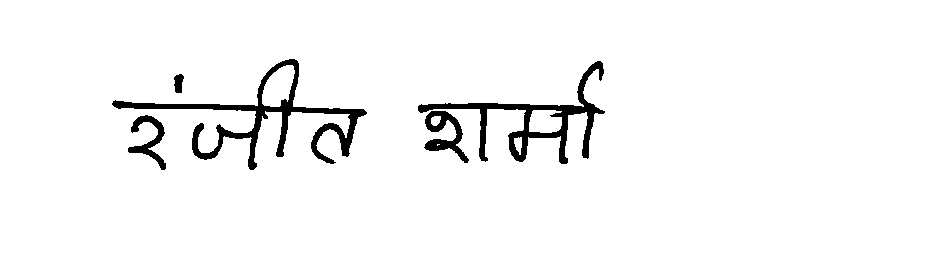 रंजीत शर्मा